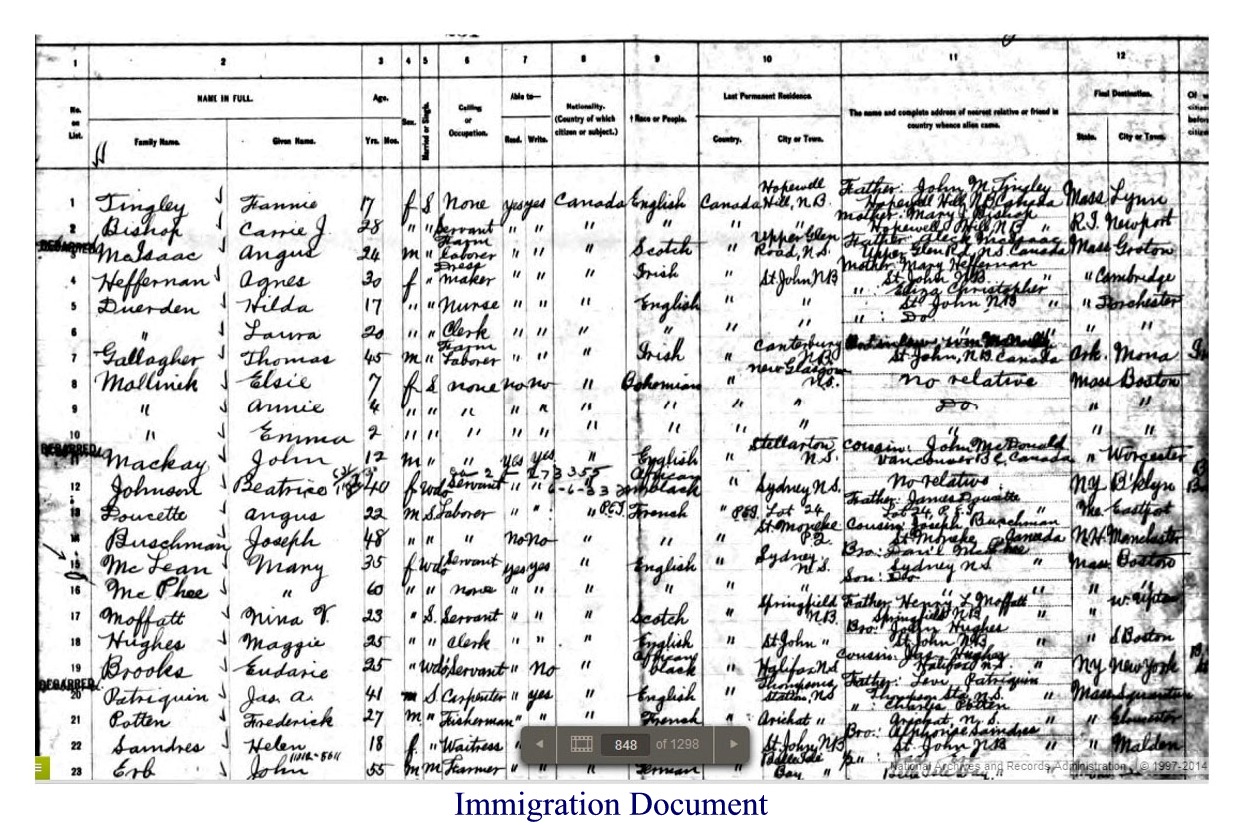 1 2 3 4 5 6 7 8 9 10 11 12
No. on List. NAME IN FULL. Age. Sex. Married or Single. Calling or Occupation. Able to— Nationality. (Country of which citizen or subject.) † Race or People. Last Permanent Residence. The name and complete address of nearest relative or friend in country whence alien came. Final Destination.
Family Name. Given Name. Yrs. Mos. Read. Write. Country. City or Town. State. City or Town.
1 Tingley Fannie 17 f S None yes yes Canada English Canada Hopewell Hill, N.B. Father: John M. Tingley Hopewell Hill, N.B. Canada Mass Lynn
2 Bishop Carrie J. 28 " " Servant " " " " " " Mother: Mary J. Bishop Hopewell Hill, N.B. " R.I. Newport
DEBARRED
3 McIsaac Angus 24 m " Farm laborer " " " Scotch " Upper Glen Road, N.S. Father: McIsaac Upper Glen Rd, N.S. Canada Mass Groton
4 Heffernan Agnes 30 f " Dress maker " " " Irish " St John NB Mother: Mary Heffernan St. John NB " " Cambridge
5 Duerden Hilda 17 " " Nurse " " " English " " " : Eliza Christopher St. John NB " " Dorchester
6 " Laura 20 " " Clerk " " " " " " " : Do " "
7 Gallagher Thomas 45 m " Farm Laborer " " " Irish " Canterbury N.B. St John, N.B. Canada Ark. Mona
8 Mallinek Elsie 7 f S none no no " Bohemian " New Glasgow N.S. no relative Mass Boston
9 " Annie 4 " " " " " " " " " Do " "
10 " Emma 2 " " " " " " " " " " " "
DEBARRED
11 Mackay John 12 m " " yes yes " English " Stellarton N.S. Cousin: John McDonald Vancouver B.C. Canada " Worcester
12 Johnson Beatrice 40 f wd Servant " " African black " Sydney N.S. No relative NY B'klyn
13 Doucette Angus 22 m S Laborer " " " P.E.I French " P.E.I Lot 24 Father: James Doucette Lot 24, P.E.I " Me. Eastport
14 Buschman Joseph 48 " " " no no " " " Cousin: Joseph Buschman Canada N.H. Manchester
15 McLean Mary 35 f wd Servant yes yes " English " Sydney N.S. Bro: Dan'l McPhee Sydney NS " Mass Boston
16 McPhee " 60 " " none " " " " " " Son: Do " "
17 Moffatt Nina V. 23 " S. Servant " " " Scotch " Springfield N.B. Father: Henry L Moffatt Springfield N.B. " " W. Upton
18 Hughes Maggie 25 " " Clerk " " " English " St John " Bro: Hughes St. John N.B " " S Boston
19 Brooks Eudavie 25 " wd Servant " No " African black " Halifax NS Cousin: Jas. Hughes Halifax N.S. " NY New York
DEBARRED
20 Patriquin Jas. A. 41 m S Carpenter " yes " English " Thompson Station, NS Father: Levi Patriquin Thompson Sta. N.S. " Mass Squantum
21 Potten Frederick 27 m " Fisherman " " " French " Arichat " " : Charles Potten Arichat, N.S. " " Gloucester
22 Samdres Helen 18 f " Waitress " St. John, NB Bro: Alphonse Samdres St. John NB " " Malden
23 Erb John 55 m M Farmer " German Belleisle Bay "
848 of 1298
National Archives and Records Administration © 1997-2014
Immigration Document